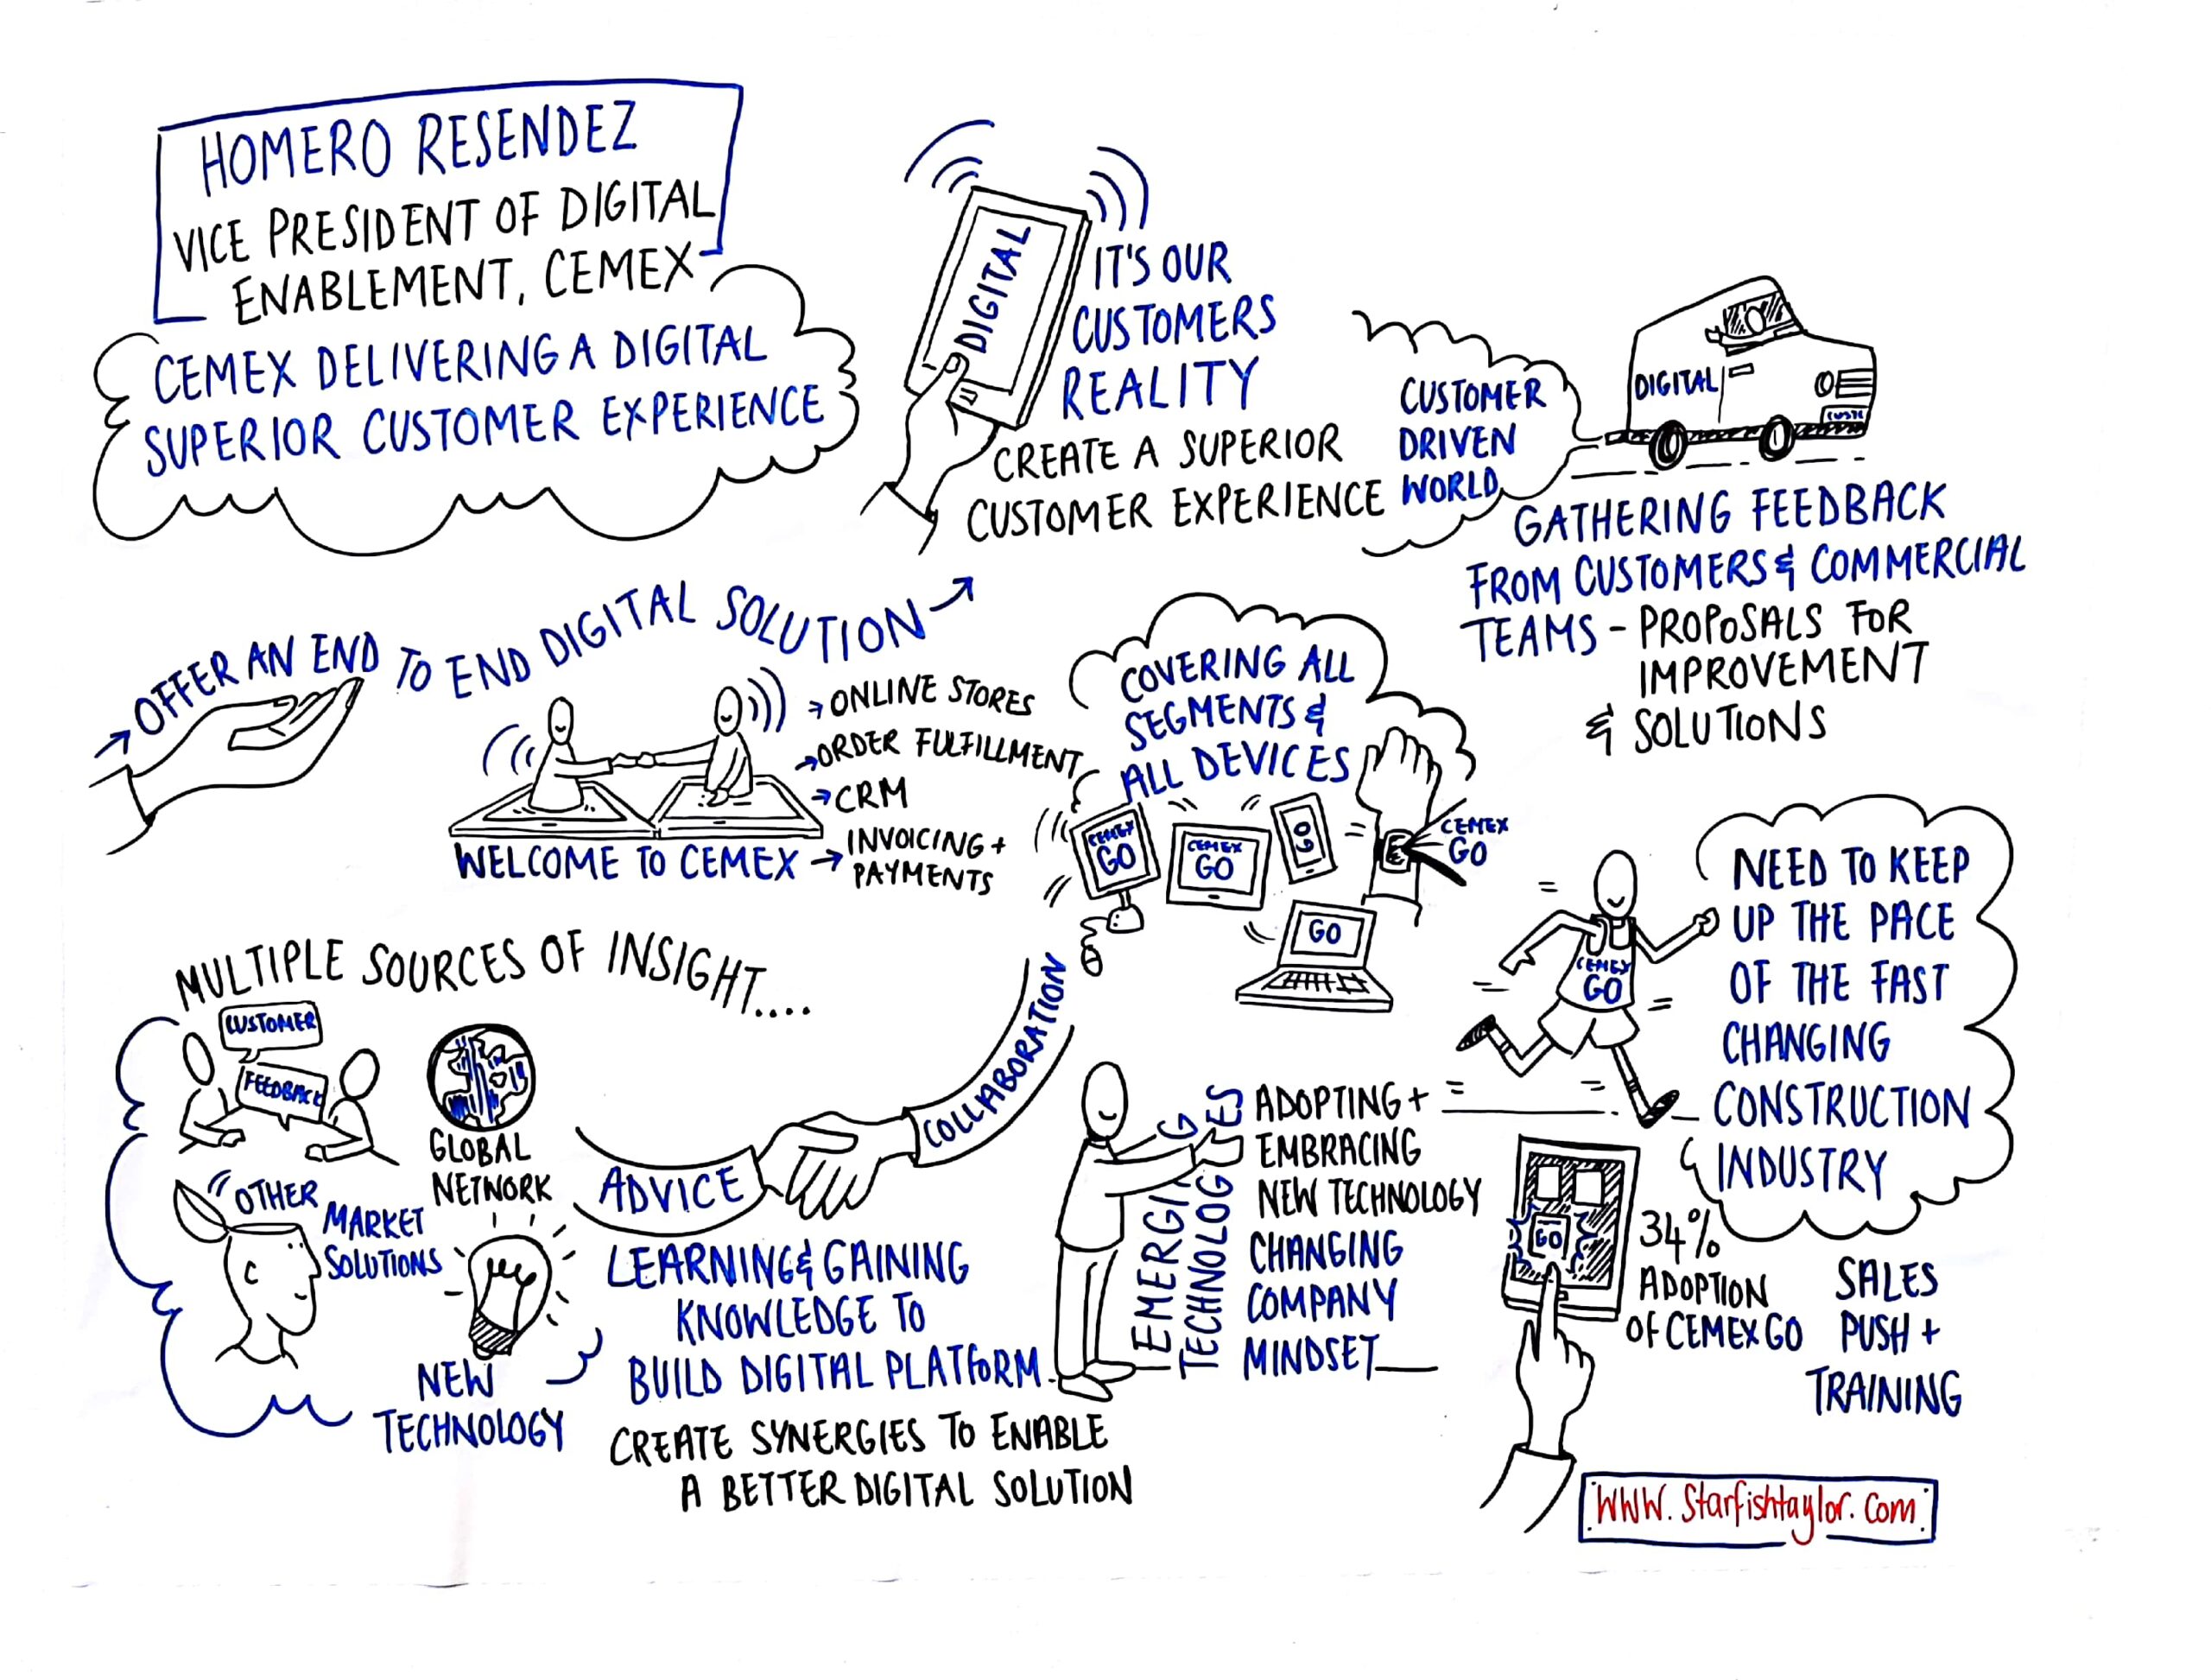 HOMERO RESENDEZ
VICE PRESIDENT OF DIGITAL
ENABLEMENT, CEMEX
CEMEX DELIVERING A DIGITAL
SUPERIOR CUSTOMER EXPERIENCE
DIGITAL
IT'S OUR
CUSTOMERS
REALITY
CREATE A SUPERIOR
CUSTOMER EXPERIENCE
CUSTOMER
DRIVEN
WORLD
DIGITAL
GATHERING FEEDBACK
FROM CUSTOMERS & COMMERCIAL
TEAMS - PROPOSALS FOR
IMPROVEMENT
& SOLUTIONS
→ OFFER AN END TO END DIGITAL SOLUTION →
→ ONLINE STORES
→ ORDER FULFILLMENT
→ CRM
WELCOME TO CEMEX → INVOICING +
PAYMENTS
COVERING ALL
SEGMENTS &
ALL DEVICES
CEMEX
GO
CEMEX
GO
GO
CEMEX
GO
GO
CEMEX
GO
NEED TO KEEP
UP THE PACE
OF THE FAST
CHANGING
CONSTRUCTION
INDUSTRY
MULTIPLE SOURCES OF INSIGHT....
CUSTOMER
FEEDBACK
GLOBAL
NETWORK
OTHER
MARKET
SOLUTIONS
NEW
TECHNOLOGY
ADVICE
COLLABORATION
LEARNING & GAINING
KNOWLEDGE TO
BUILD DIGITAL PLATFORM
CREATE SYNERGIES TO ENABLE
A BETTER DIGITAL SOLUTION
EMERGING
TECHNOLOGIES
ADOPTING +
EMBRACING
NEW TECHNOLOGY
CHANGING
COMPANY
MINDSET
GO
34%
ADOPTION
OF CEMEX GO
SALES
PUSH +
TRAINING
WWW.Starfishtaylor.com